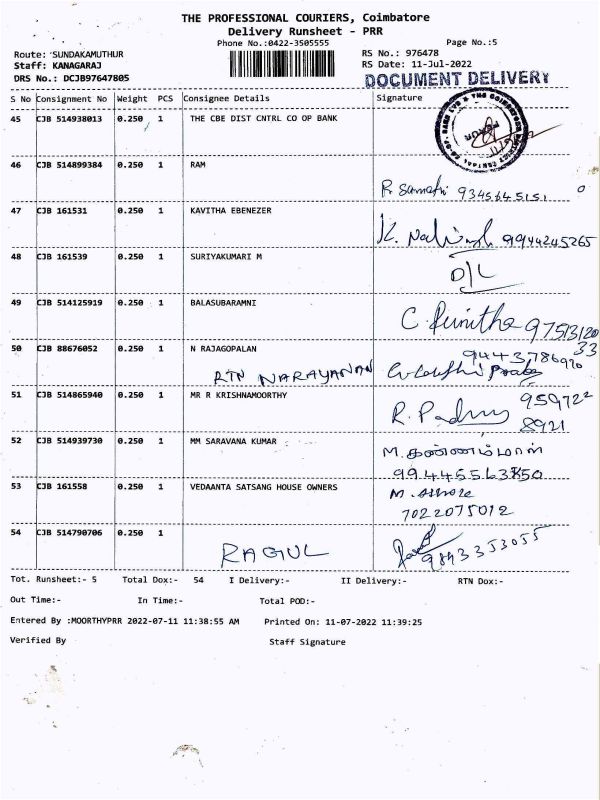 THE PROFESSIONAL COURIERS, Coimbatore
Delivery Runsheet - PRR
Phone No.:0422-3505555
Page No.:5
Route: SUNDAKAMUTHUR
RS No.: 976478
Staff: KANAGARAJ
RS Date: 11-Jul-2022
DRS No.: DCJB97647805
DOCUMENT DELIVERY
S No Consignment No Weight PCS Consignee Details Signature
45 CJB 514938013 0.250 1 THE CBE DIST CNTRL CO OP BANK
46 CJB 514899384 0.250 1 RAM
9345645151
47 CJB 161531 0.250 1 KAVITHA EBENEZER
K. 9944245265
48 CJB 161539 0.250 1 SURIYAKUMARI M
D/L
49 CJB 514125919 0.250 1 BALASUBARAMNI
C. Punitha 9751312033
50 CJB 88676052 0.250 1 N RAJAGOPALAN
RTN NARAYANAN
51 CJB 514865940 0.250 1 MR R KRISHNAMOORTHY
R. 959722
8921
52 CJB 514939730 0.250 1 MM SARAVANA KUMAR
M. கண்ணம்மாள்
53 CJB 161558 0.250 1 VEDAANTA SATSANG HOUSE OWNERS
7022075012
54 CJB 514790706 0.250 1
RAGUL
9893353055
Tot. Runsheet:- 5 Total Dox:- 54 I Delivery:- II Delivery:- RTN Dox:-
Out Time:- In Time:- Total POD:-
Entered By :MOORTHYPRR 2022-07-11 11:38:55 AM Printed On: 11-07-2022 11:39:25
Verified By Staff Signature